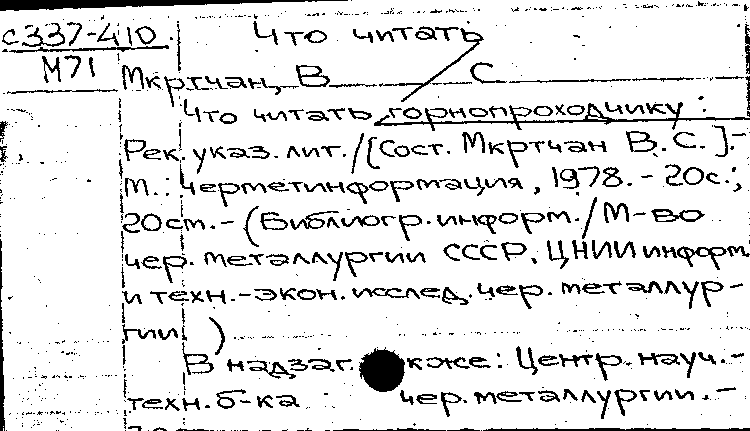 с337-410 Что читать
М71 Мкртчан, В С
Что читать горнопроходчику :
Рек. указ. лит. / [Сост. Мкртчан В. С. ]. -
М. : Черметинформация, 1978. - 20 с. ;
20 см. - (Библиогр. информ. / М-во
чер. металлургии СССР, ЦНИИ информ
и техн.-экон. исслед. чер. металлур-
гии. )
В надзаг. : Центр. науч.-
техн. б-ка чер. металлургии. -